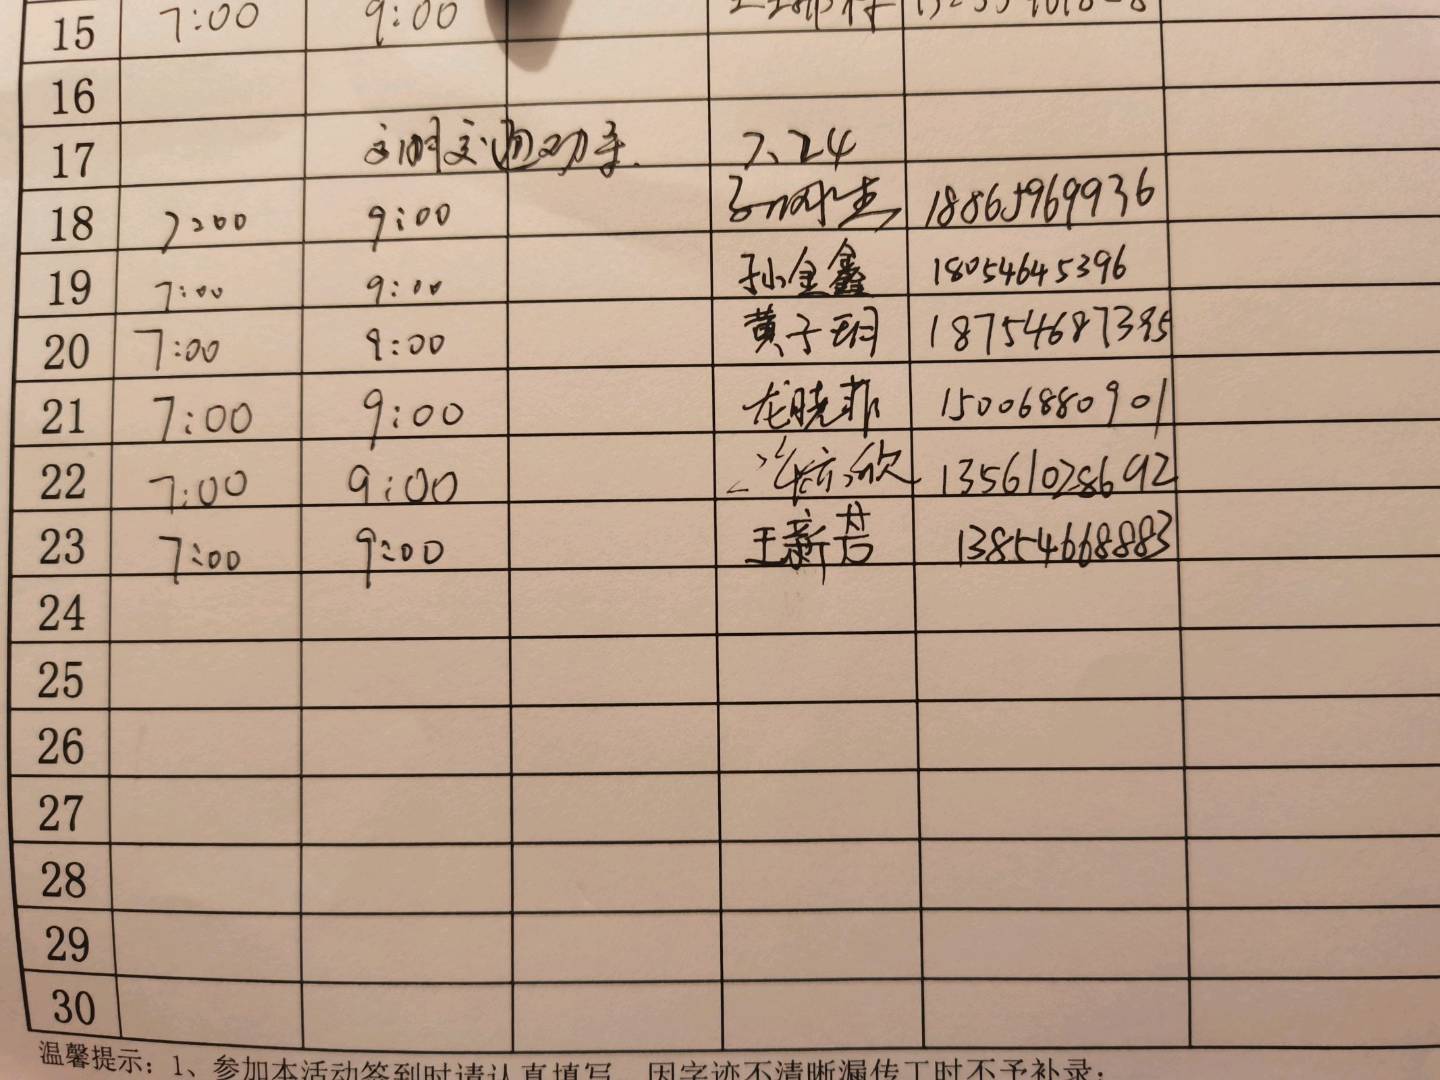 15 7:00 9:00
16
17 文明交通劝导 7、24
18 7:00 9:00 18865969936
19 7:00 9:00 孙金鑫 18054645396
20 7:00 9:00 黄子玥 18754687395
21 7:00 9:00 龙晓菲 15006880901
22 7:00 9:00 13561028692
23 7:00 9:00 王新若 13854668883
24
25
26
27
28
29
30
温馨提示：1、参加本活动签到时请认真填写，因字迹不清晰漏传工时不予补录；